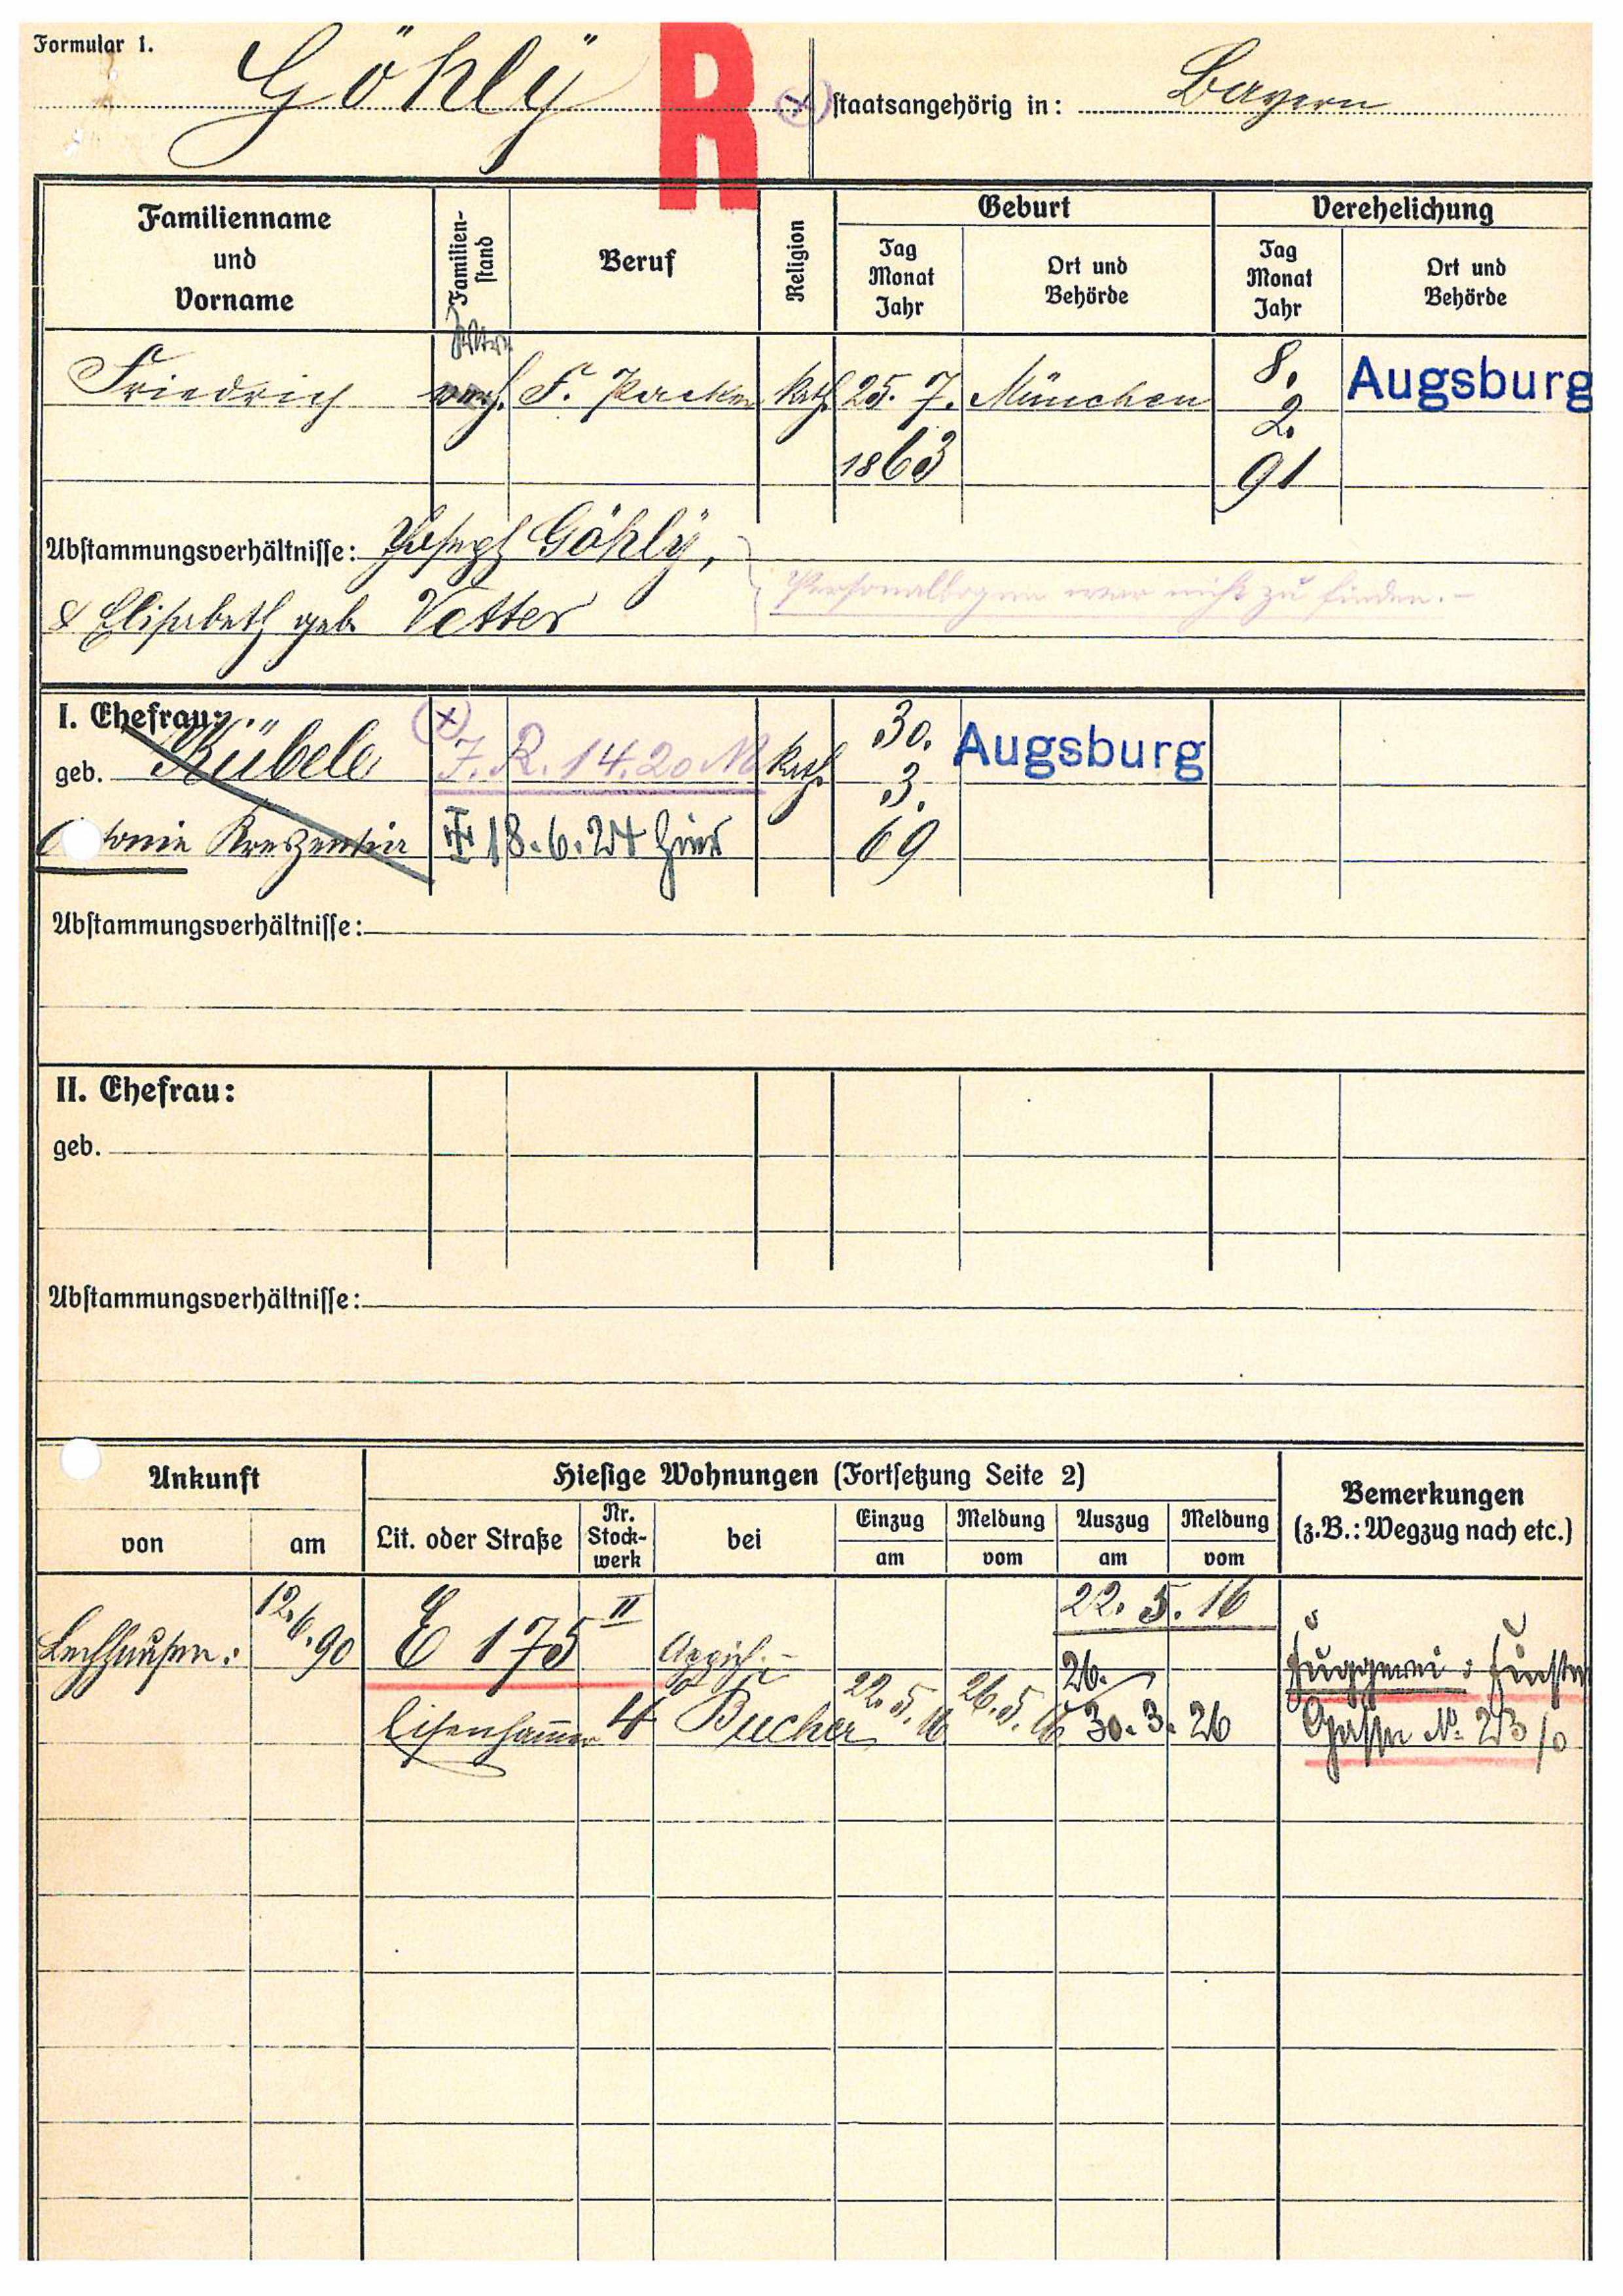 Formular 1.
Göhlÿ R staatsangehörig in: Bayern
Familienname und Vorname
Familien-stand
Beruf
Religion
Geburt
Tag Monat Jahr
Ort und Behörde
Verehelichung
Tag Monat Jahr
Ort und Behörde
Friedrich verh. F. Packer kath 25. 7. 1863 München 8. 2. 91 Augsburg
Abstammungsverhältnisse: Joseph Göhlÿ,
& Elisabeth geb. Vetter
Personalbogen war nicht zu finden. –
I. Ehefrau:
geb. Kübele J. R. 14. 20 M kath 30. 3. 69 Augsburg
Kreszentia 18. 6. 24 hier
Abstammungsverhältnisse:
II. Ehefrau:
geb.
Abstammungsverhältnisse:
Ankunft
von
am
Hiesige Wohnungen (Fortsetzung Seite 2)
Lit. oder Straße
Nr. Stock-werk
bei
Einzug am
Meldung vom
Auszug am
Meldung vom
Bemerkungen
(z.B.: Wegzug nach etc.)
Lechhausen: 12. 6. 90 E 175 II 22. 5. 16
Eisenhammer 4 Bucher 22. 5. 16 26. 5. 16 26. 30. 3. 26
Fuggerei: Finstere
Gasse No 23/0